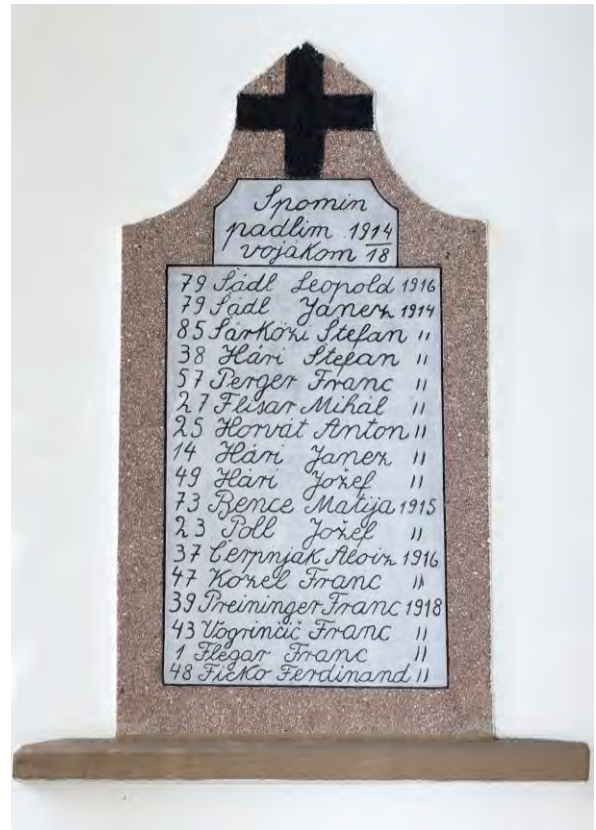 Spomin
padlim 1914
vojakom 18
79 Šadl Leopold 1916
79 Šadl Janez 1914
85 Šarközi Štefan "
38 Hári Štefan "
57 Perger Franc "
27 Flisar Mihal "
25 Horvát Anton "
14 Hári Janez "
49 Hári Jožef "
73 Bence Matija 1915
23 Poll Jožef "
37 Černjak Alojz 1916
47 Kozel Franc "
39 Preininger Franc 1918
43 Vogrinčič Franc "
1 Flegar Franc "
48 Ficko Ferdinand "